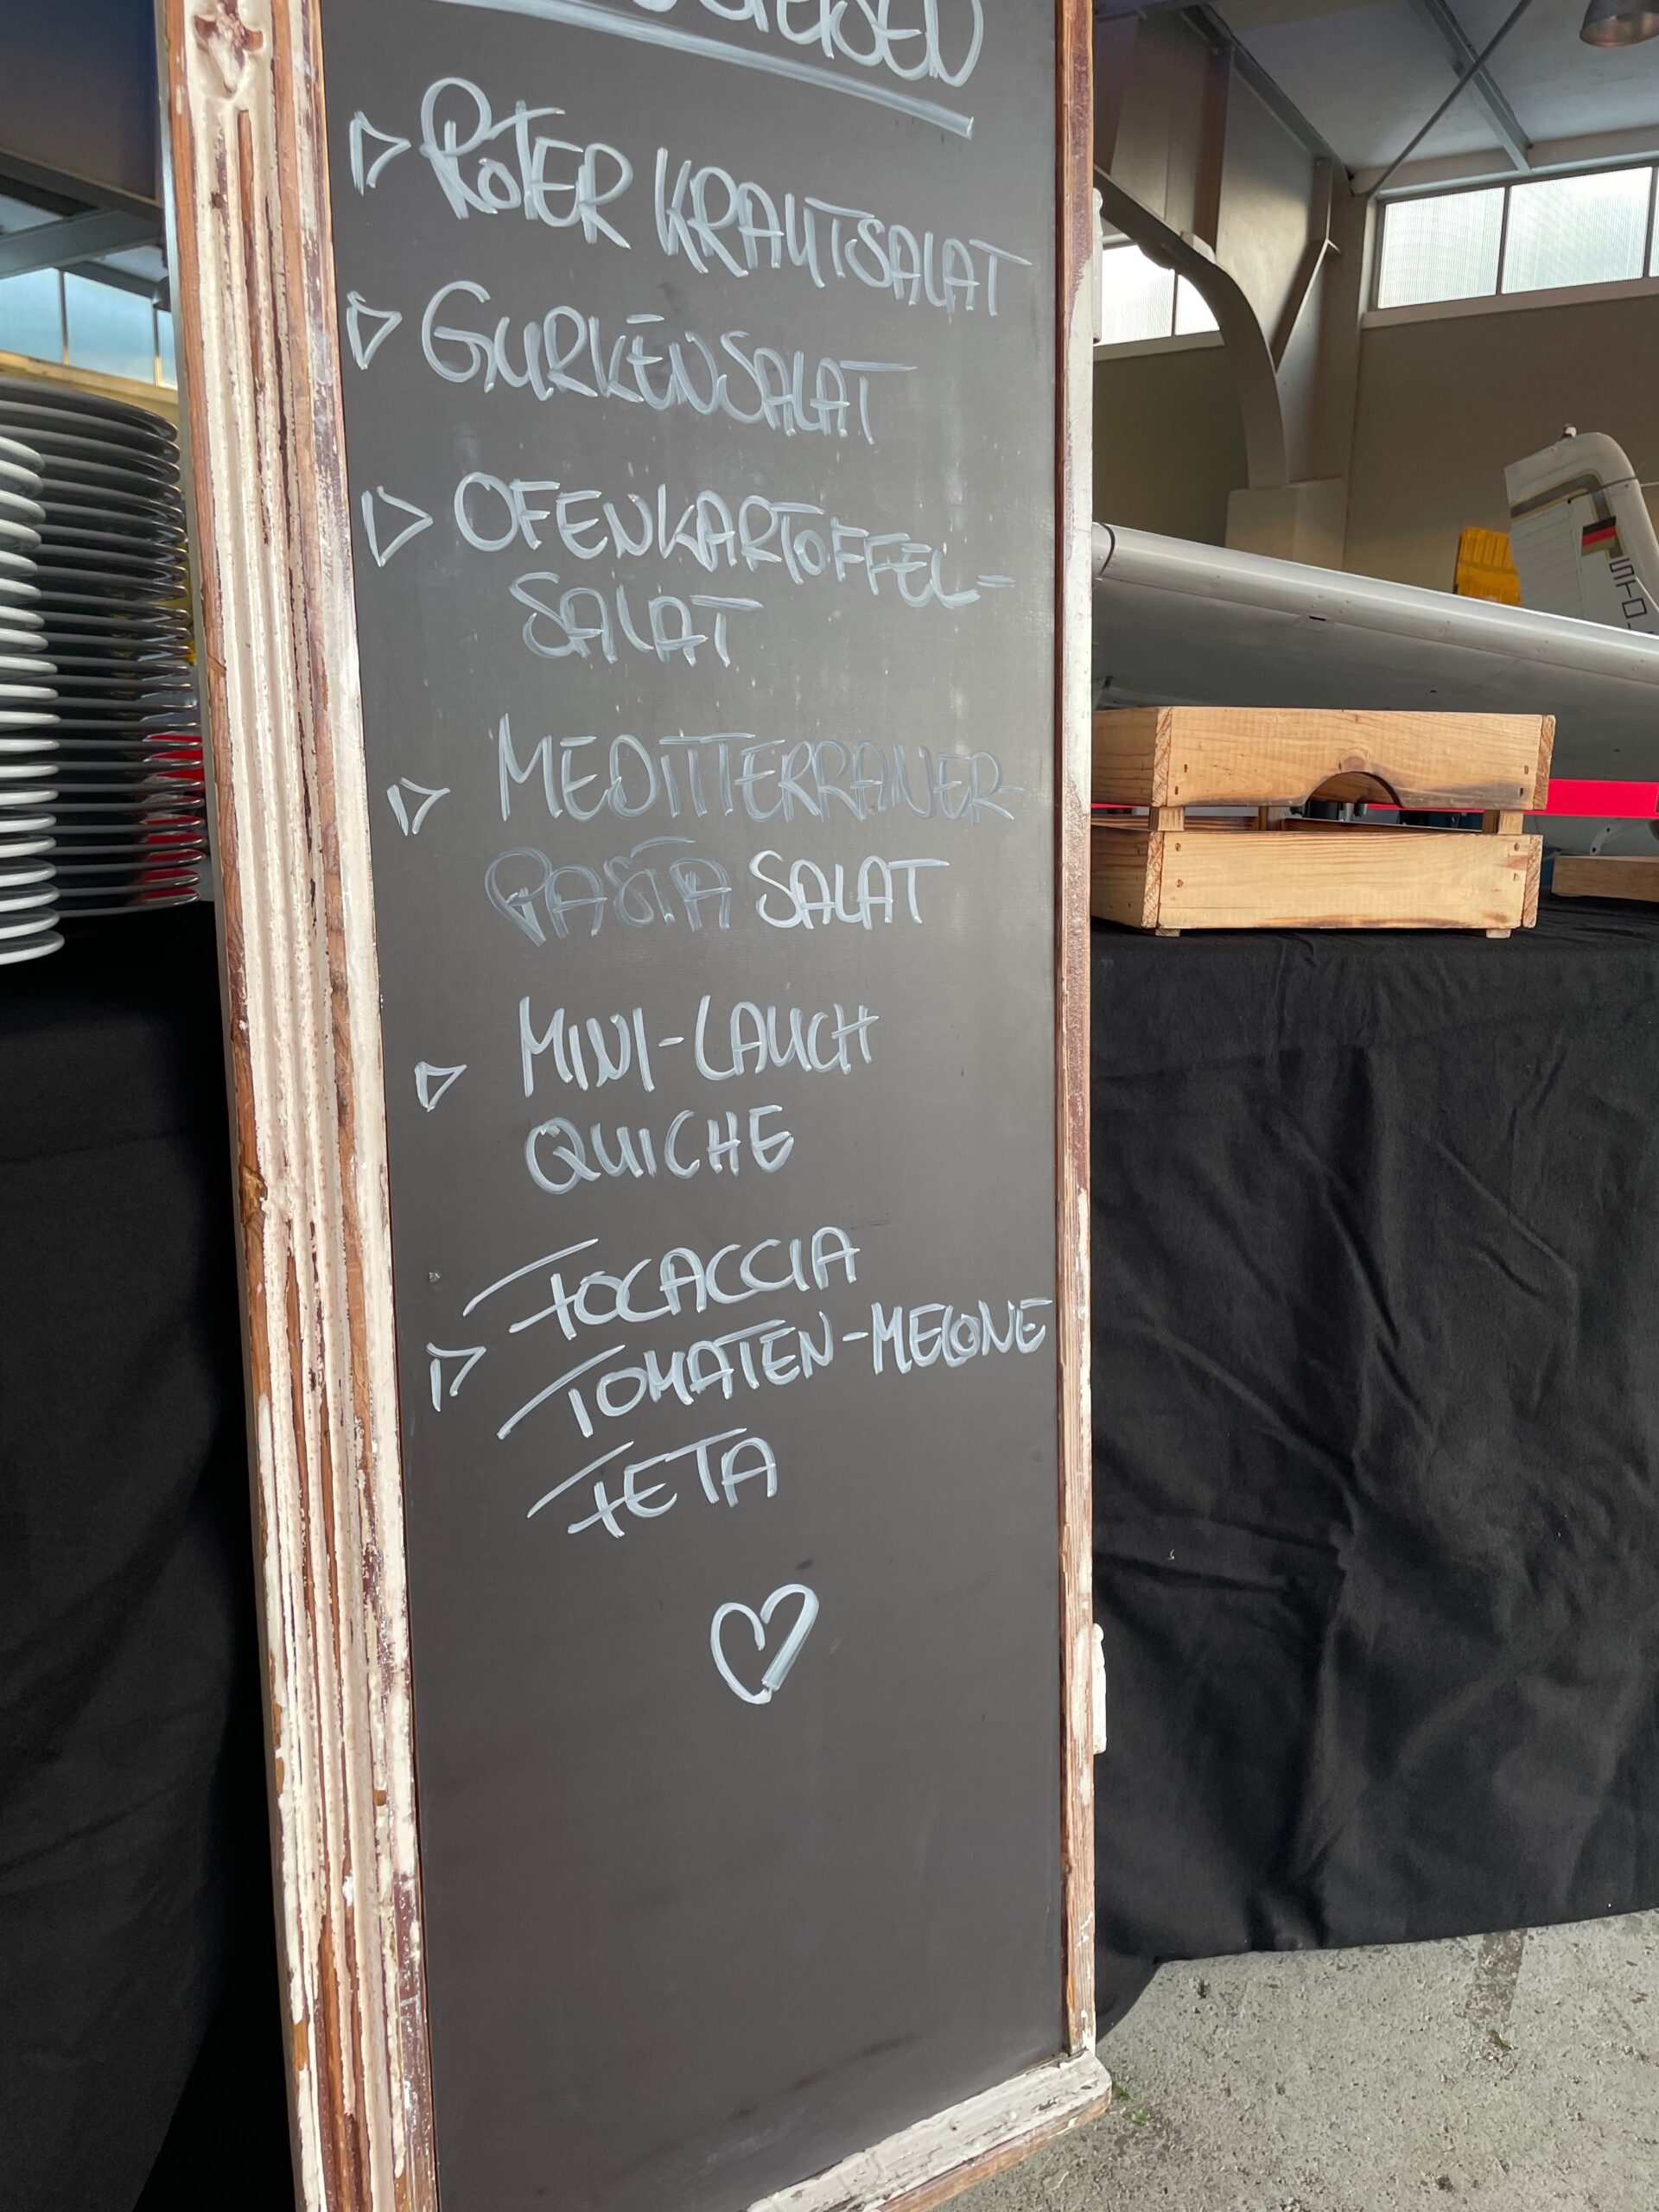 ROTER KRAUTSALAT
GURKENSALAT
OFENKARTOFFEL-
SALAT
MEDITTERRANER-
PASTA SALAT
MINI-LAUCH
QUICHE
FOCACCIA
TOMATEN-MELONE
FETA